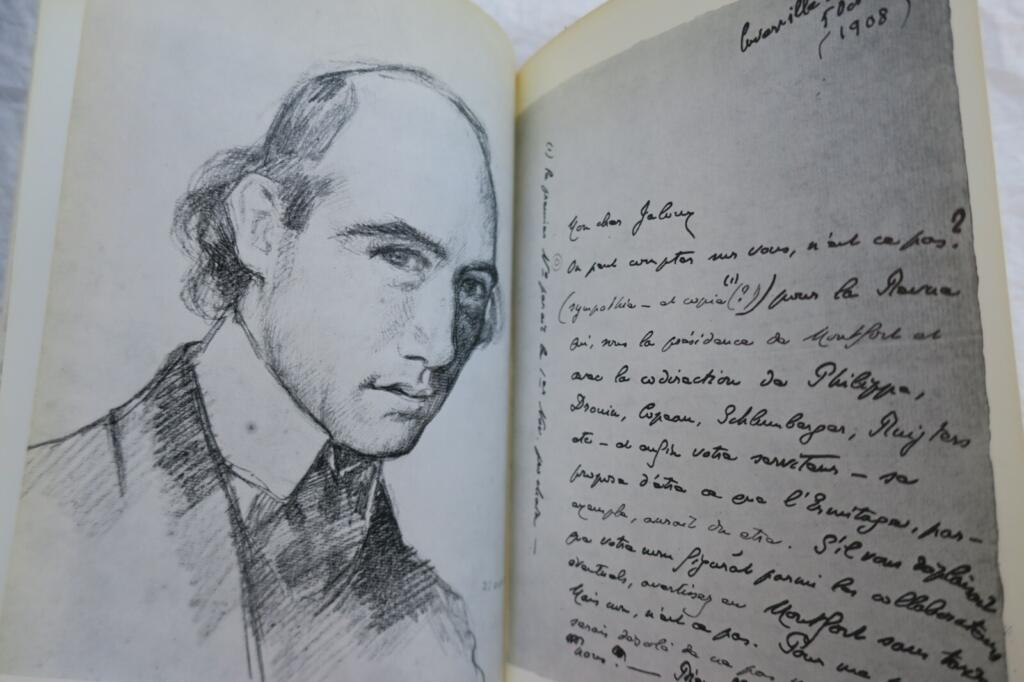 Cuverville
5 Oct
(1908)
Mon cher Jaloux
On peut compter sur vous, n'est ce pas?
(sympathie – et copie (1) (?)) pour la Revue
qui, sous la présidence de Montfort et
avec la codirection de Philippe,
Drouin, Copeau, Schlumberger, Ruijters
etc – et enfin votre serviteur – se
propose d'être ce que l'Ermitage, par-
exemple, aurait du etre. S'il vous déplaisait
que votre nom figurât parmi les collaborateurs
éventuels, avertissez en Montfort sans tarder
Mais non, n'est ce pas. Pour ma
serais désolé de ne pas
nous! —
(1) Le premier No parait le 1er Nov. prochain —